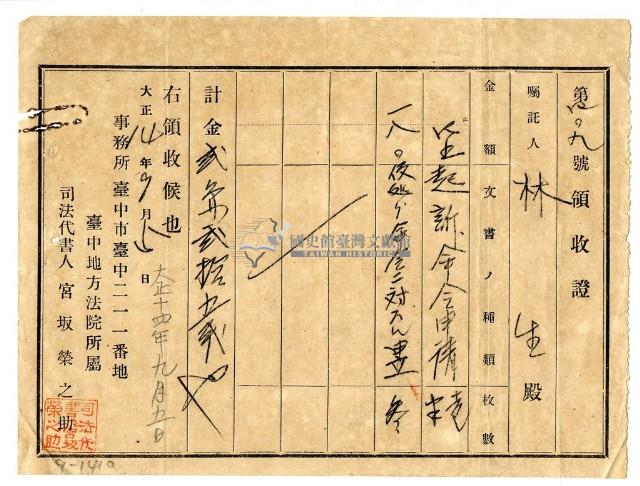 第四〇九號領收證
囑託人 林 生 殿
金額 文書ノ種類 枚數
起訴命令申請
一八〇 後
計金貳円貳拾五戔也
右領收候也
大正14年9月5日
事務所 臺中市臺中二一一番地
臺中地方法院所屬
司法代書人 宮坂榮之助
大正十四年九月五日
司法代書宮坂榮之助
國史館臺灣文獻館
TAIWAN HISTORICA
9-1410